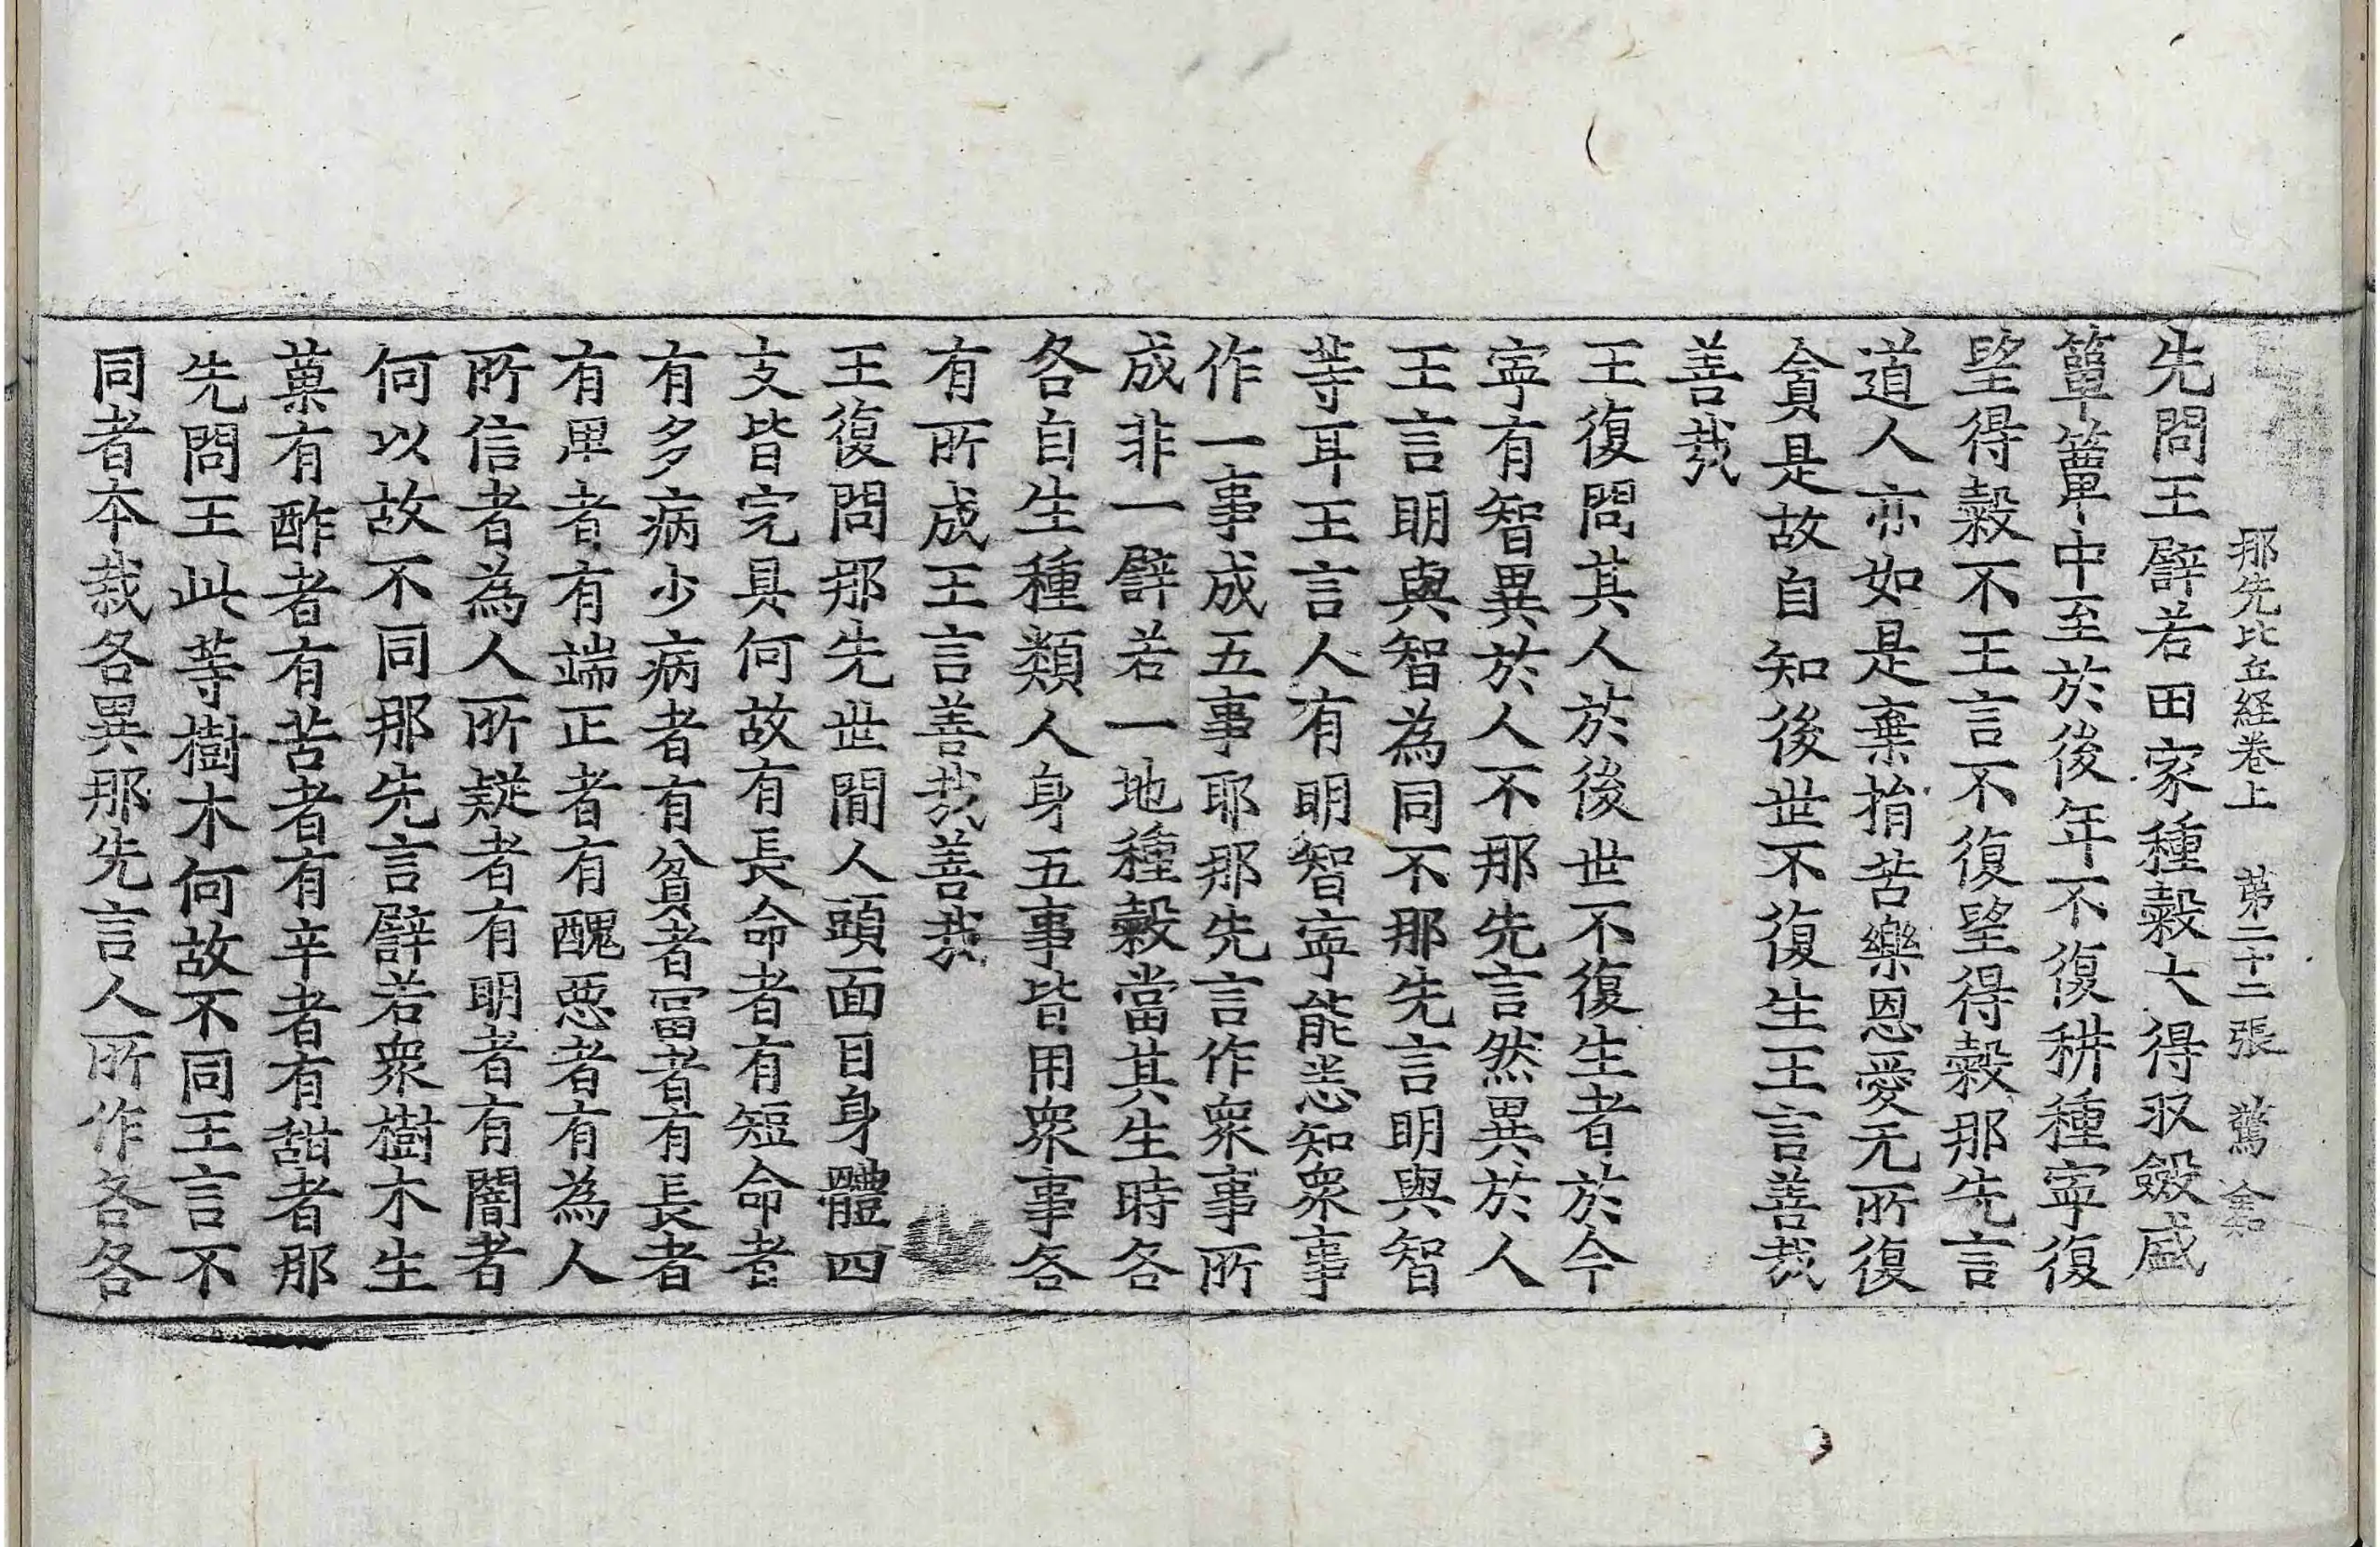 那先比丘経卷上 第二十二張 驚 龠
先問王譬若田家種穀大得収斂盛
簞簟中至於後年不復耕種寧復
望得穀不王言不復望得穀那先言
道人亦如是棄捐苦樂恩愛无所復
貪是故自知後世不復生王言善哉
善哉
王復問其人於後世不復生者於今
寧有智異於人不那先言然異於人
王言明與智為同不那先言明與智
等耳王言人有明智寧能悉知衆事
作一事成五事耶那先言作衆事所
成非一譬若一地種穀當其生時各
各自生種類人身五事皆用衆事各
有所成王言善哉善哉
王復問那先世間人頭面目身體四
支皆完具何故有長命者有短命者
有多病少病者有貧者冨者有長者
有卑者有端正者有醜惡者有為人
所信者為人所疑者有明者有闇者
何以故不同那先言譬若衆樹木生
菓有酢者有苦者有辛者有甜者那
先問王此等樹木何故不同王言不
同者本栽各異那先言人所作各各